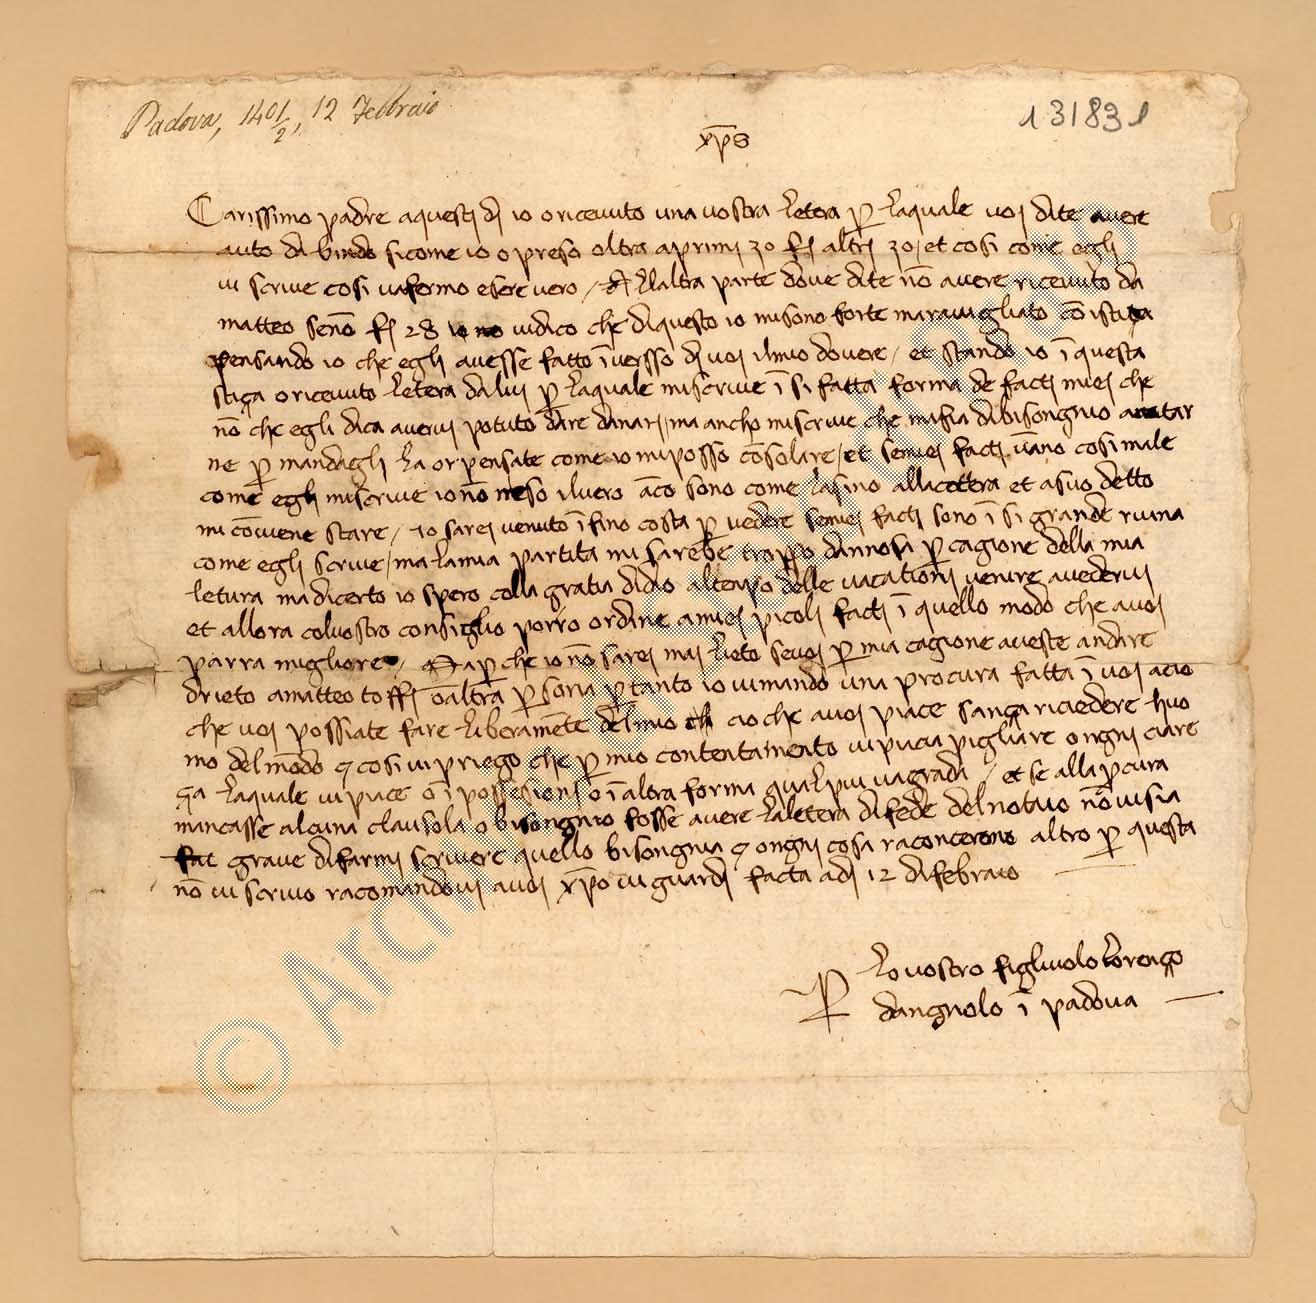 Padova, 1401/2, 12 Febbraio
131831
xp̄s
Carissimo padre aquesti dì io o ricevuto una vostra letera p̱ laquale voi dite avere
auto da bindo sicome io o preso oltra aprimi 30 f. altri 30 / et cosi come egli
vi scrive cosi vafermo esere vero / Dellaltra parte dove dite nō avere ricevuto da
matteo senō f. 28 vidico che diquesto io misono forte maravigliato cō istiça
pensando io che egli avesse fatto īversso di voi ilmio dovere / et stando io ī questa
stiça o ricevuto letera dalui p̱ laquale miscrive ī si fatta forma de facti miei che
nō che egli dica avervi potuto dare danari / ma ancho miscrive che mafia dibisongnio acatar
ne p̱ mandagli la or pensate come io miposso cōsolare / et semiei facti vāno cosi male
come egli miscrive io nō neso ilvero āco sono come lasino allacettera et asuo detto
mi cōviene stare / io sarei venuto īfino costa p̱ vedere semiei facti sono ī si grande ruina
come egli scrive / ma lamia partita mi sarebe troppo dannosa p̱ cagione della mia
letura ma dicerto io spero colla gratia didio altenpo delle vacationi venire avedervi
et allora colvostro consiglio porro ordine amiei picoli facti ī quello modo che avoi
parra migliore / Ma p̱ che io nō sarei mai lieto sevoi p̱ mia cagione aveste andare
drieto amatteo toffi o altra p̱sona p̱tanto io vimando una procura fatta ī voi acio
che voi possiate fare liberamēte delmio cio che avoi piace sança riciedere huo
mo delmōdo e cosi vi priego che p̱ mio contentamento vi piacia pigliare ongni ciare
ça laquale vi piace o ī possesioni o ī altra forma qualpiu vagrada / et se alla p̱cura
mancasse alcuna clausola o bisongnio fosse avere laletera di fede delnotaio nō visia
grave difarmi scrivere quello bisongnia e ongni cosa raconcerono altro p̱ questa
nō vi scrivo racomandovi avoi xp̄o vi guardi facta adi 12 difebraio
P̱ lo vostro figliuolo lorenço
dangniolo ī padova
© Arch